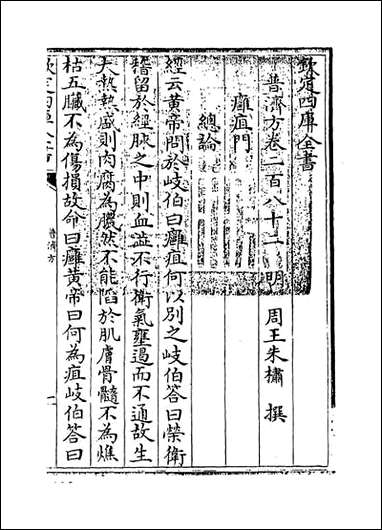 欽定四庫全書
普濟方卷二百八十二　明　周王朱橚　撰
癰疽門
總論
經云黄帝問於岐伯曰癰疽何以别之岐伯答曰榮衛
稽留於經脉之中則血澁不行衛氣壅遏而不通故生
大熱熱盛則肉腐為膿然不能䧟於肌膚骨髓不為燋
枯五臟不為傷損故命曰癰黄帝曰何為疽岐伯答曰
普濟方